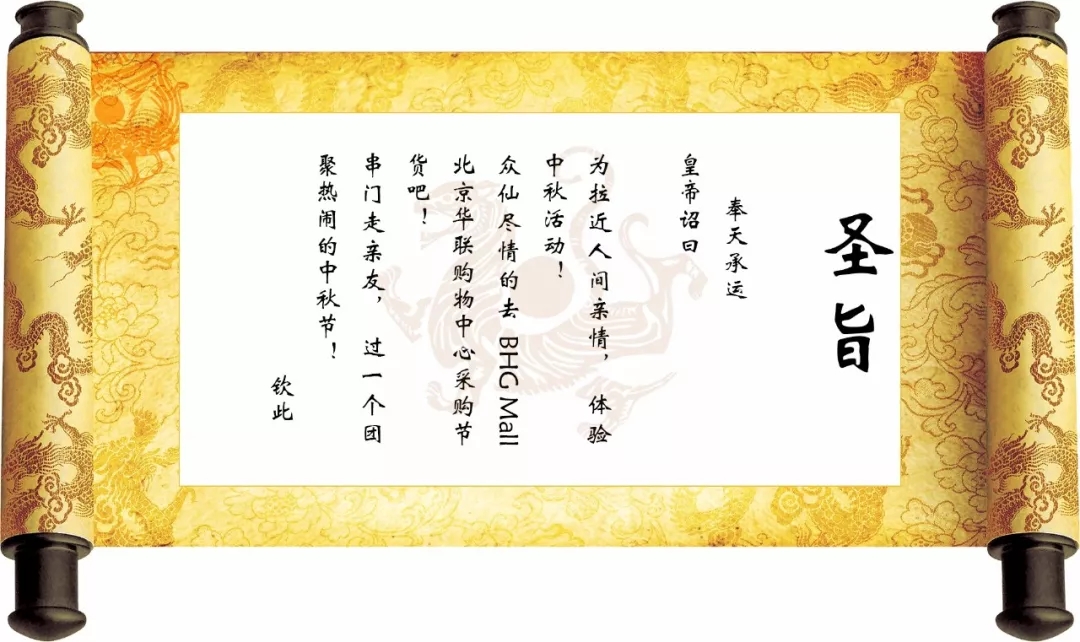 圣旨
奉天承运
皇帝诏曰
为拉近人间亲情，体验
中秋活动！
众仙尽情的去 BHG Mall
北京华联购物中心采购节
货吧！
串门走亲友，过一个团
聚热闹的中秋节！
钦此